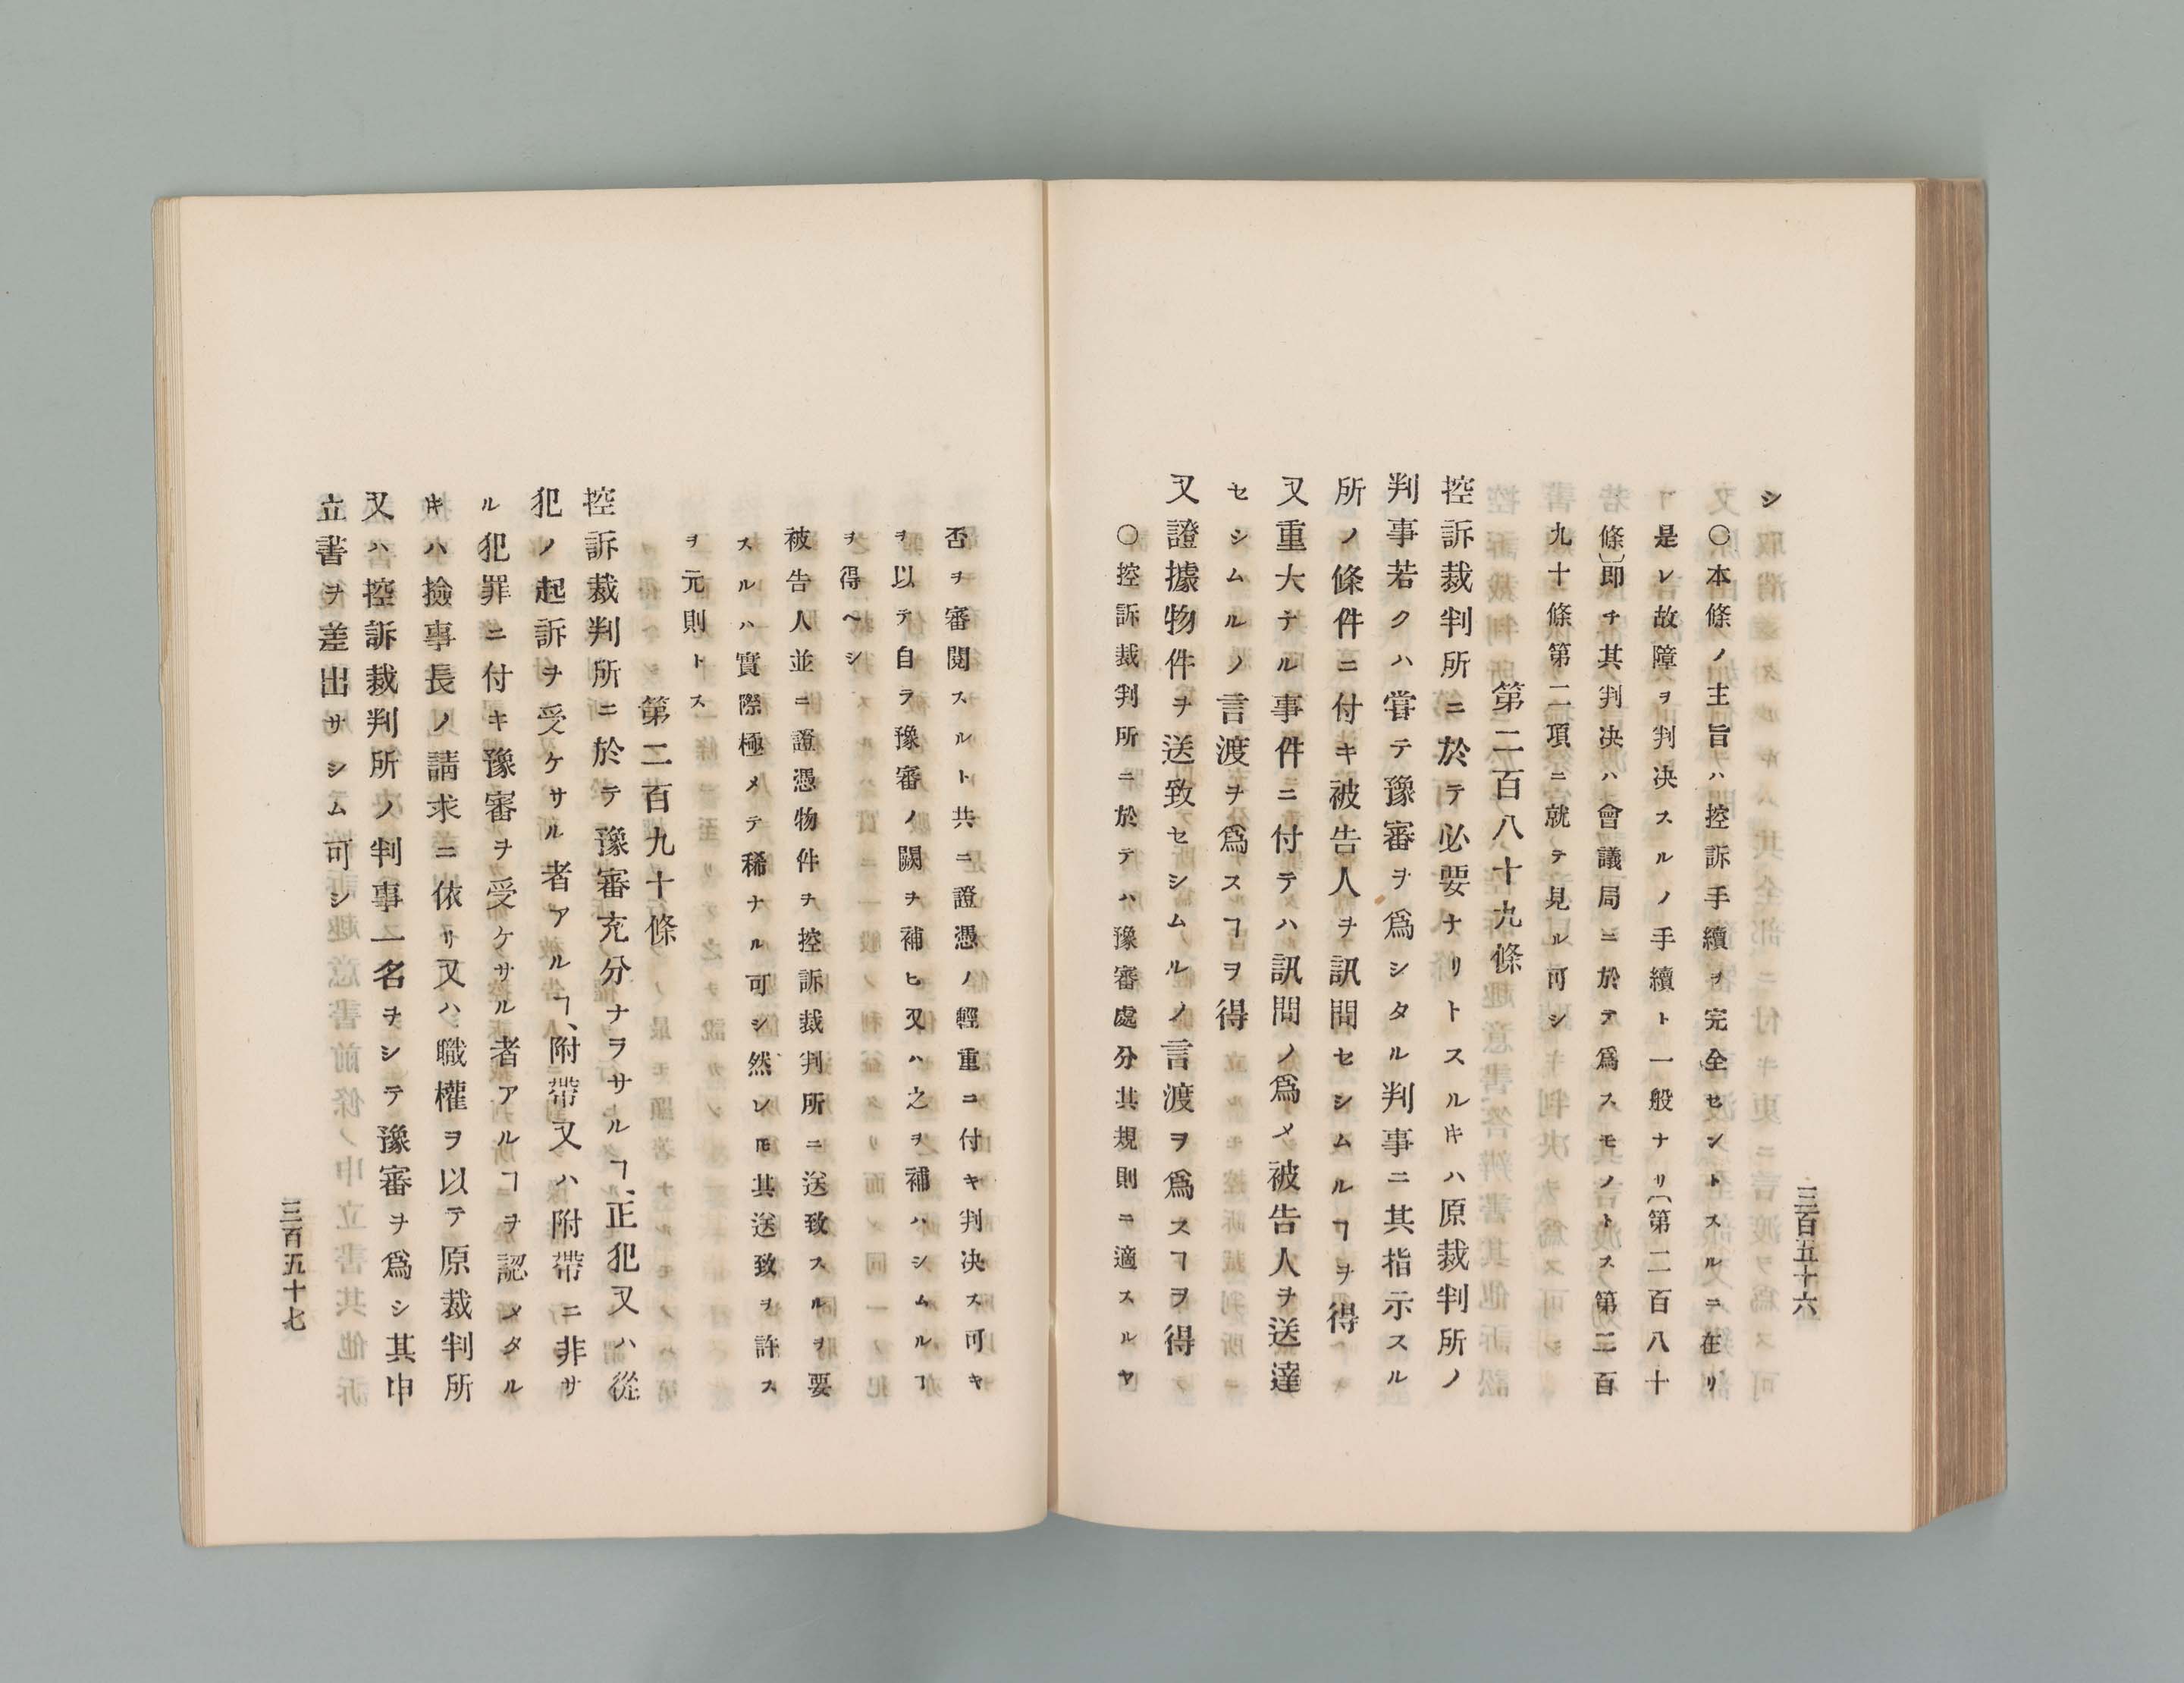 三百五十六
シ
〇本條ノ主旨ハ控訴手續ヲ完全セントスルニ在リ
是レ故障ヲ判决スルノ手續ト一般ナリ〔第二百八十
條〕即チ其判决ハ會議局ニ於テ爲スモノトス第二百
九十條第二項ニ就テ見ル可シ
第二百八十九條
控訴裁判所ニ於テ必要ナリトスルキハ原裁判所ノ
判事若クハ甞テ豫審ヲ爲シタル判事ニ其指示スル
所ノ條件ニ付キ被告人ヲ訊問セシムルヿヲ得
又重大ナル事件ニ付テハ訊問ノ爲メ被告人ヲ送達
セシムルノ言渡ヲ爲スヿヲ得
又證據物件ヲ送致セシムルノ言渡ヲ爲スヿヲ得
〇控訴裁判所ニ於テハ豫審處分其規則ニ適スルヤ
否ヲ審閱スルト共ニ證憑ノ輕重ニ付キ判决ス可キ
ヲ以テ自ラ豫審ノ闕ヲ補ヒ又ハ之ヲ補ハシムルヿ
ヲ得ヘシ
被告人並ニ證憑物件ヲ控訴裁判所ニ送致スルヲ要
スルハ實際極メテ稀ナル可シ然レ𪜈其送致ヲ許ス
ヲ元則トス
第二百九十條
控訴裁判所ニ於テ豫審充分ナラサルヿ、正犯又ハ從
犯ノ起訴ヲ受ケサル者アルヿ、附帶又ハ附帶ニ非サ
ル犯罪ニ付キ豫審ヲ受ケサル者アルヿヲ認メタル
キハ撿事長ノ請求ニ依リ又ハ職權ヲ以テ原裁判所
又ハ控訴裁判所ノ判事一名ヲシテ豫審ヲ爲シ其申
立書ヲ差出サシム可シ
三百五十七